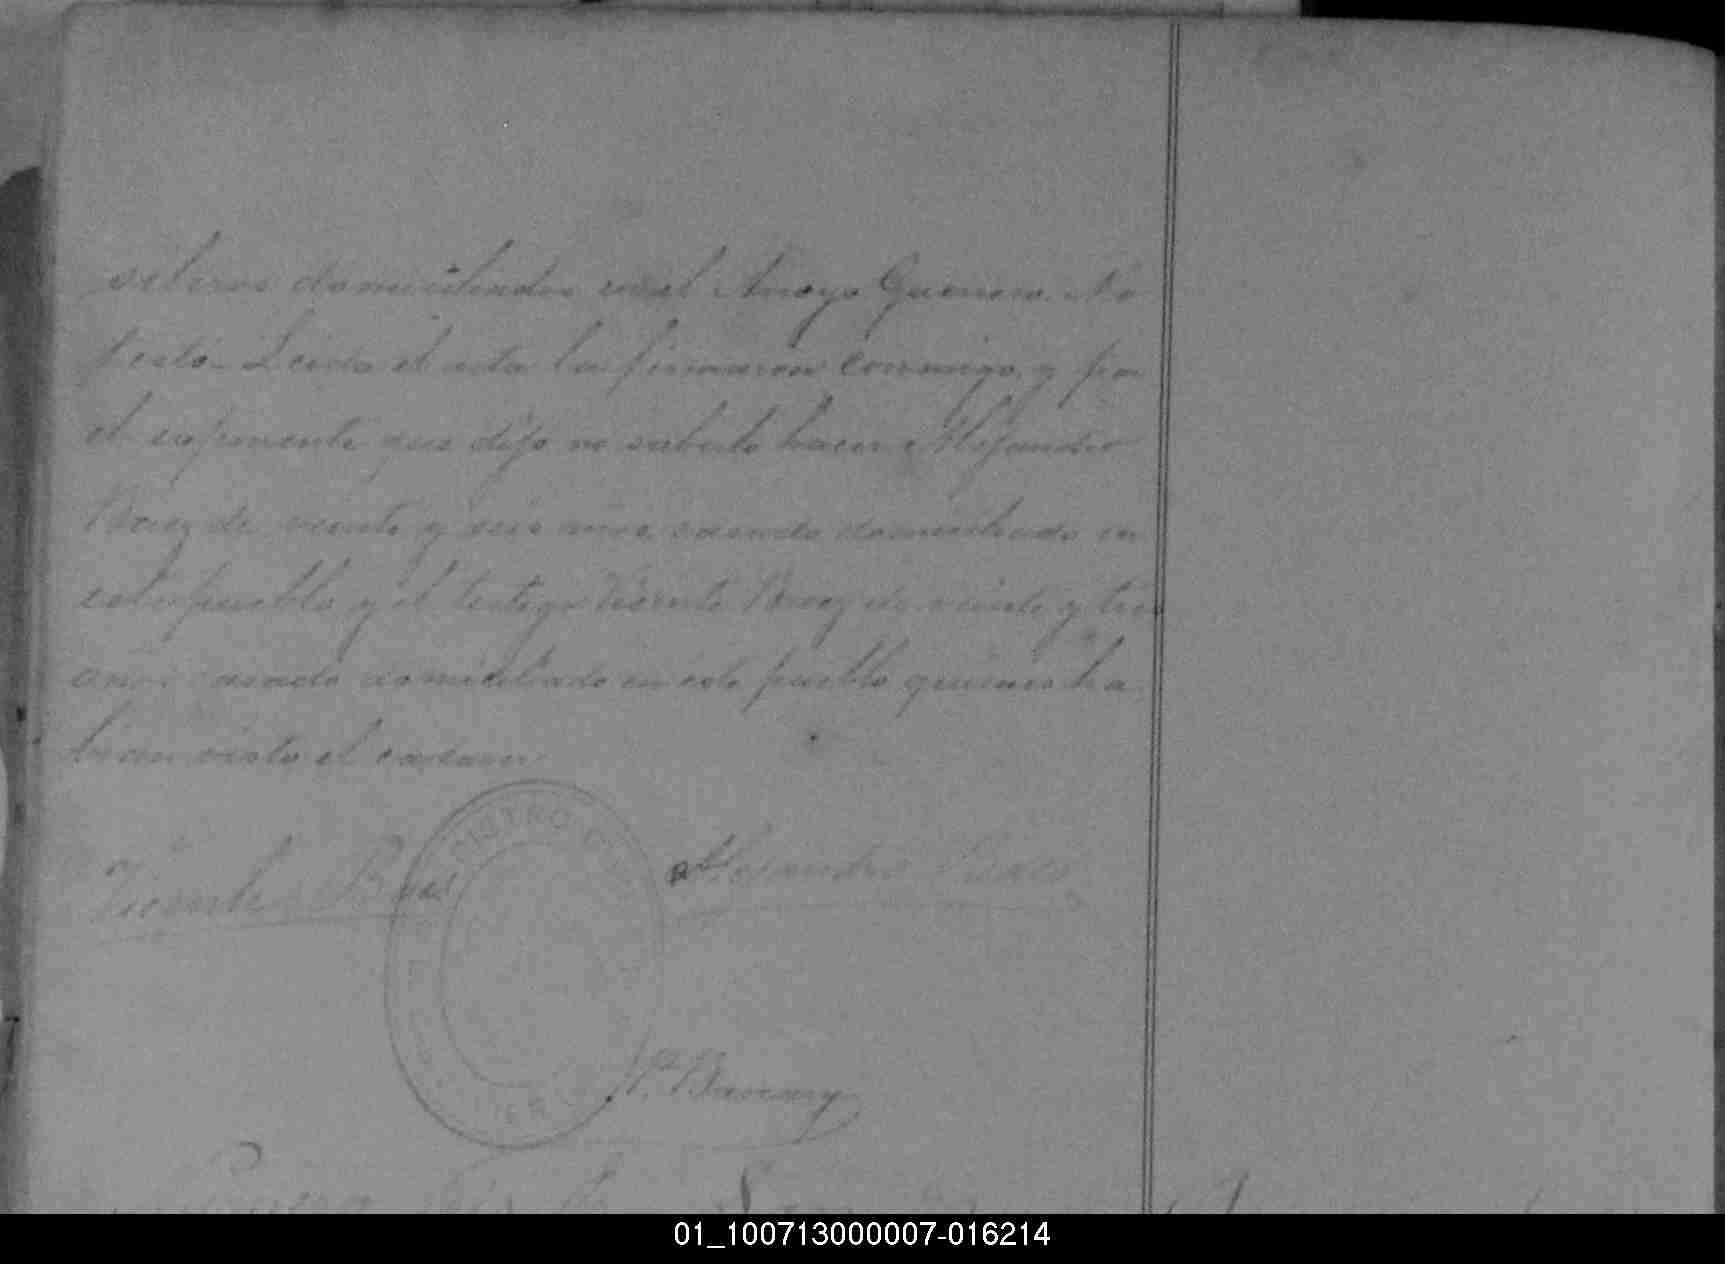 solteros domiciliados en el Arroyo Guerrero. No
testó. Leida el acta la firmaron conmigo, y por
el exponente que dijo no saberlo hacer Alejandro
Baez de veinte y seis años, casado domiciliado en
este pueblo y el testigo Vicente Baez de veinte y tres
años casado domiciliado en este pueblo quienes ha
bian visto el cadaver.
Vicente Baes
Alejandro
REGISTRO
01_100713000007-016214